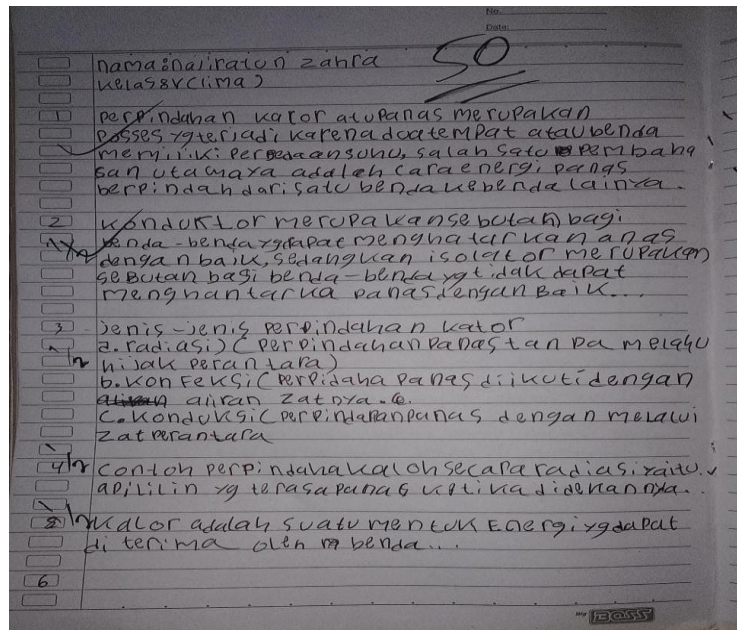 No.
Date:
50
nama:naziratun zahra
kelas:V(lima)
1 perpindahan kator atupanas merupakan
posses yg terjadi karena dua tempat atau benda
memiliki perbedaan suhu, salah satu pembaha
san utamaya adalah cara energi panas
berpindah dari satu benda kebenda lainya.
2 konduktor merupakan sebutan bagi
benda-benda yg dapat menghatarkan anas
dengan baik, sedangkan isolator merupakan
sebutan bagi benda-benda yg tidak dapat
menghantarka panas dengan Baik...
3 jenis-jenis perpindahan kator
a. radiasi) (perpindahan panas tan pa melalu
hijak perantara)
b. konfeksi (perpidaha panas diikuti dengan
airan zatnya.
c. konduksi (perpindanan panas dengan melalui
zat perantara
4 1/2 contoh perpindaha kaloh secara radiasi yaitu.
apililin yg terasa panas ketika didekannya..
5 1/2 kalor adalah suatu mentuk Energi yg dapat
di terima oleh benda...
6
My BOSS